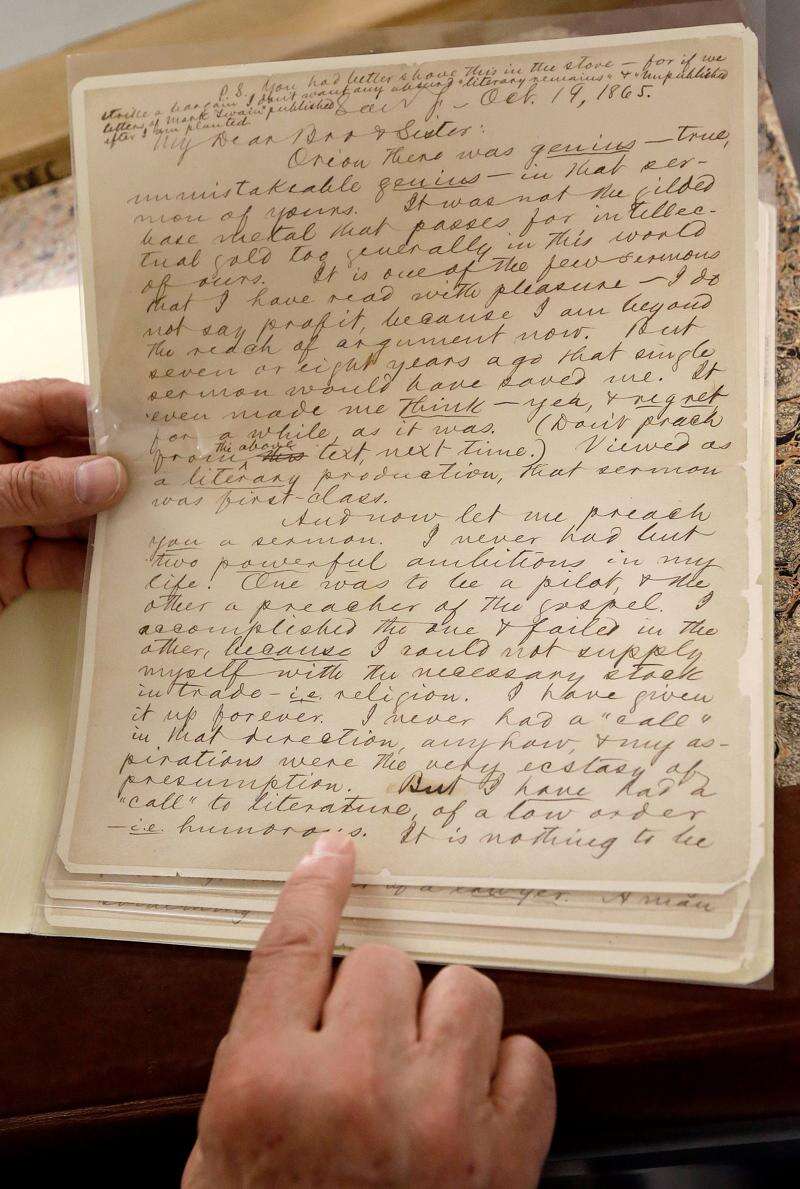 P.S. You had better shove this in the stove — for if we
strike a bargain I don't want any absurd "literary remains" & "unpublished
letters of Mark Twain" published
after I am planted.
San F. — Oct. 19, 1865.
My Dear Bro & Sister:
Orion there was genius — true,
unmistakeable genius — in that ser-
mon of yours. It was not the gilded
base metal that passes for intellec-
tual gold too generally in this world
of ours. It is one of the few sermons
that I have read with pleasure — I do
not say profit, because I am beyond
the reach of argument now. But
seven or eight years ago that single
sermon would have saved me. It
even made me think — yea, & regret,
for a while, as it was. (Don't preach
from the above this text, next time.) Viewed as
a literary production, that sermon
was first-class.
And now let me preach
you a sermon. I never had but
two powerful ambitions in my
life. One was to be a pilot, & the
other a preacher of the gospel. I
accomplished the one & failed in the
other, because I could not supply
myself with the necessary stock
in trade — i.e. religion. I have given
it up forever. I never had a "call"
in that direction, anyhow, & my as-
pirations were the very ecstasy of
presumption. But I have had a
"call" to literature, of a low order
— i.e. humorous. It is nothing to be
of a lawyer. A man